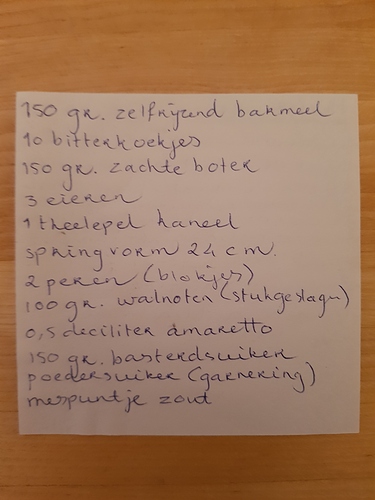 150 gr. zelfrijzend bakmeel
10 bitterkoekjes
150 gr. zachte boter
3 eieren
1 theelepel kaneel
springvorm 24 cm.
2 peren (blokjes)
100 gr. walnoten (stukgeslagen)
0,5 deciliter amaretto
150 gr. basterdsuiker
poedersuiker (garnering)
mespuntje zout